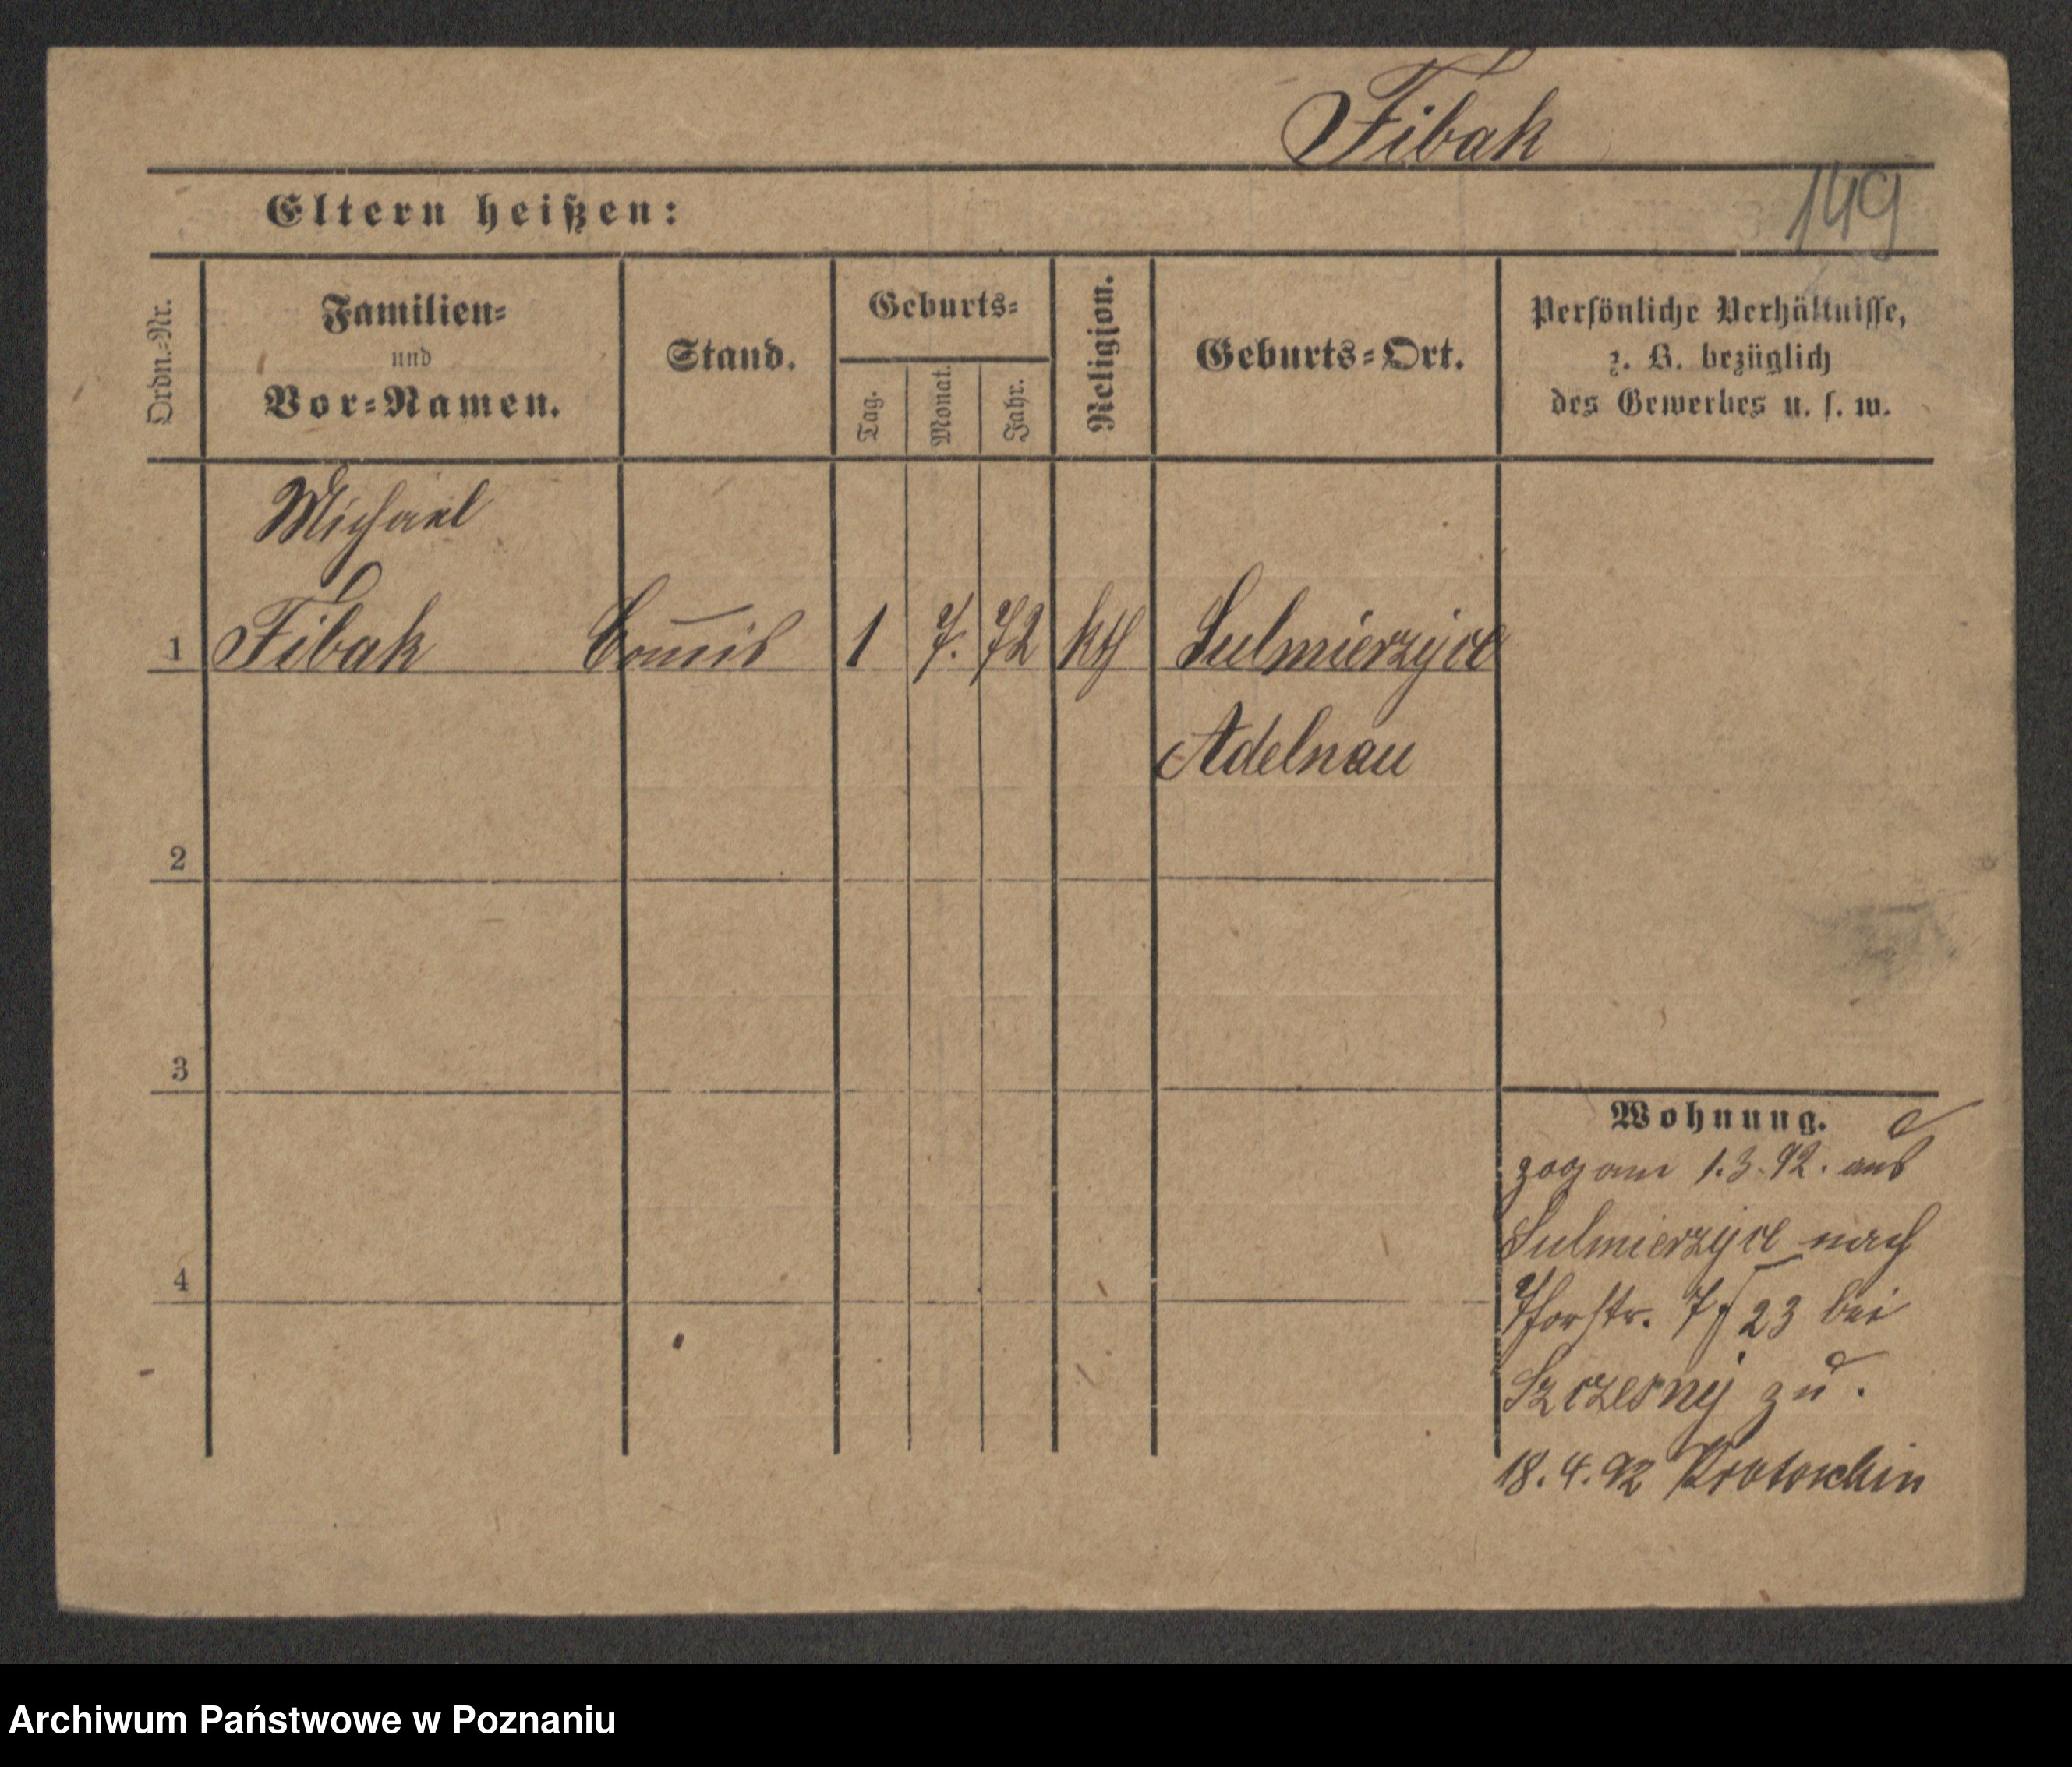 Fibak
149
Eltern heißen:
Ordn.-Nr.
Familien-
und
Vor-Namen.
Stand.
Geburts-
Tag.
Monat.
Jahr.
Religion.
Geburts-Ort.
Persönliche Verhältnisse,
z. B. bezüglich
des Gewerbes u. s. w.
Michael
1 Fibak Com̅is 1 7. 72 kth Sulmierzyce
Adelnau
2
3
4
Wohnung.
zog am 1.3.92. aus
Sulmierzyce nach
23 bei
Szczesny zu.
18.4.92 Krotoschin
Archiwum Państwowe w Poznaniu